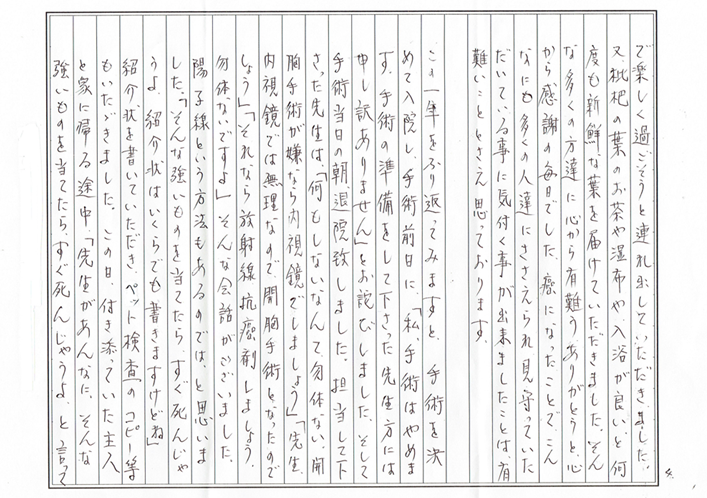 4.
で楽しく過ごそうと連れ出していただきました。
又、枇杷の葉のお茶や湿布や、入浴が良い、と何
度も新鮮な葉を届けていただきました。そん
な多くの方達に心から有難うありがとうと、心
から感謝の毎日でした。癌になったことでこん
なにも多くの人達にささえられ見守っていた
だいている事に気付く事が出来ましたことは有
難いこととさえ思っております。
この一年をふり返ってみますと、手術を決
めて入院し、手術前日に、「私、手術はやめま
す。手術の準備をして下さった先生方には
申し訳ありません」とお詫びしました。そして
手術当日の朝、退院致しました。担当して下
さった先生は、「何もしないなんて勿体ない、開
胸手術が嫌なら内視鏡でしましょう」「先生、
内視鏡では無理なので、開胸手術となったので
しょう」「それなら放射線、抗癌剤しましょう。
勿体ないですよ」そんな会話がございました。
陽子線という方法もあるのではと思いま
した。「そんな強いものを当てたらすぐ死んじゃ
うよ、紹介状はいくらでも書きますけどね」
紹介状を書いていただき、ペット検査のコピー等
もいただきました。この日、付き添っていた主人
と家に帰る途中、「先生があんなに、そんな
強いものを当てたら、すぐ死んじゃうよ、と言って